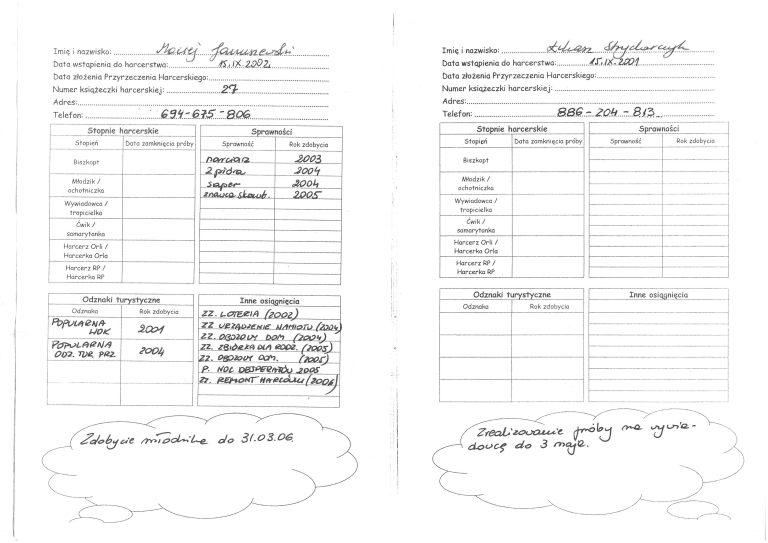 Imię i nazwisko: Maciej Januszewski
Data wstąpienia do harcerstwa: 15.IX.2002
Data złożenia Przyrzeczenia Harcerskiego:
Numer książeczki harcerskiej: 27
Adres:
Telefon: 694-675-806
Stopnie harcerskie
Stopień Data zamknięcia próby
Biszkopt
Młodzik /
ochotniczka
Wywiadowca /
tropicielka
Ćwik /
samarytanka
Harcerz Orli /
Harcerka Orla
Harcerz RP /
Harcerka RP
Sprawności
Sprawność Rok zdobycia
narciarz 2003
2 pióra 2004
saper 2004
znawca skaut. 2005
Odznaki turystyczne
Odznaka Rok zdobycia
POPULARNA
WDK 2001
POPULARNA
ODZ. TUR. PRZ. 2004
Inne osiągnięcia
ZZ. LOTERIA (2002)
ZZ URZĄDZENIE NAMIOTU (2004)
ZZ. OBOZOWY DOM (2004)
ZZ. ZBIÓRKA DLA RODZ. (2005)
ZZ. OBOZOWY DOM. (2005)
P. NOC DESPERATÓW 2005
ZZ. REMONT HARCÓWKI (2006)
Zdobycie młodzika do 31.03.06.
Imię i nazwisko: Łukasz Strycharczyk
Data wstąpienia do harcerstwa: 15.IX.2001
Data złożenia Przyrzeczenia Harcerskiego:
Numer książeczki harcerskiej:
Adres:
Telefon: 886-204-813
Stopnie harcerskie
Stopień Data zamknięcia próby
Biszkopt
Młodzik /
ochotniczka
Wywiadowca /
tropicielka
Ćwik /
samarytanka
Harcerz Orli /
Harcerka Orla
Harcerz RP /
Harcerka RP
Sprawności
Sprawność Rok zdobycia
Odznaki turystyczne
Odznaka Rok zdobycia
Inne osiągnięcia
Zrealizowanie próby na wywia-
dowcę do 3 maja.